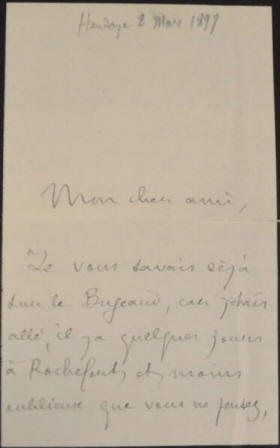 Hendaye 2 Mars 1897
Mon cher ami,
Je vous savais déjà
sur le Bugeaud, car j'étais
allé, il y a quelques jours
à Rochefort, et moins
oublieuse que vous ne pensez,